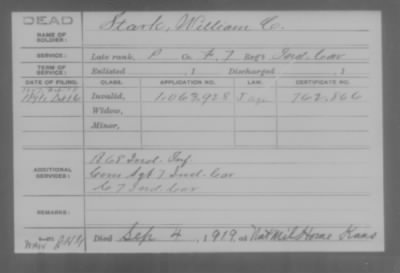 DEAD
NAME OF SOLDIER: Stark, William C.
SERVICE: Late rank, P Co. F, 7 Reg't Ind. Cav
TERM OF SERVICE: Enlisted , 1 Discharged , 1
DATE OF FILING. CLASS. APPLICATION NO. LAW. CERTIFICATE NO.
Invalid, 1,063,928 J 762,866
Widow,
Minor,
ADDITIONAL SERVICES: K 68 Ind. Inf
Com Sgt 7 Ind. Cav
C 7 Ind. Cav
REMARKS:
Died Sep 4 , 1919, at Nat Mil Home Kans